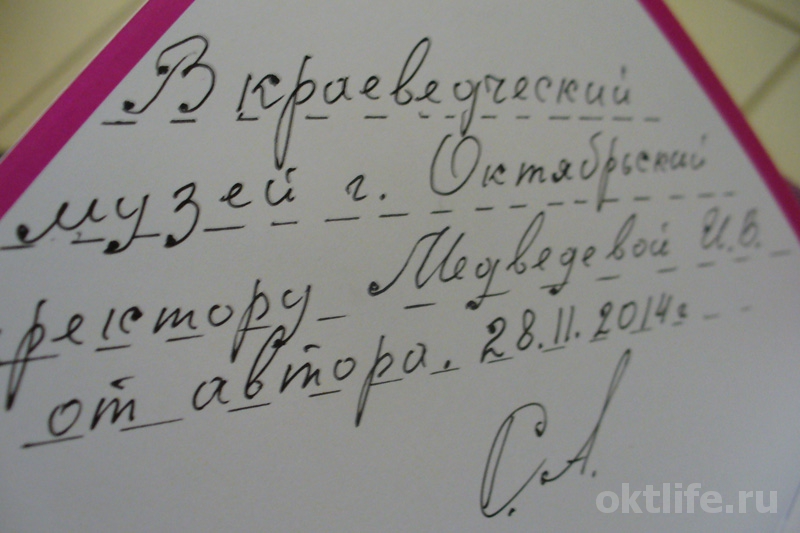 В краеведческий
музей г. Октябрьский
ректору Медведевой И.В.
от автора. 28.11.2014г
С.А.
oktlife.ru